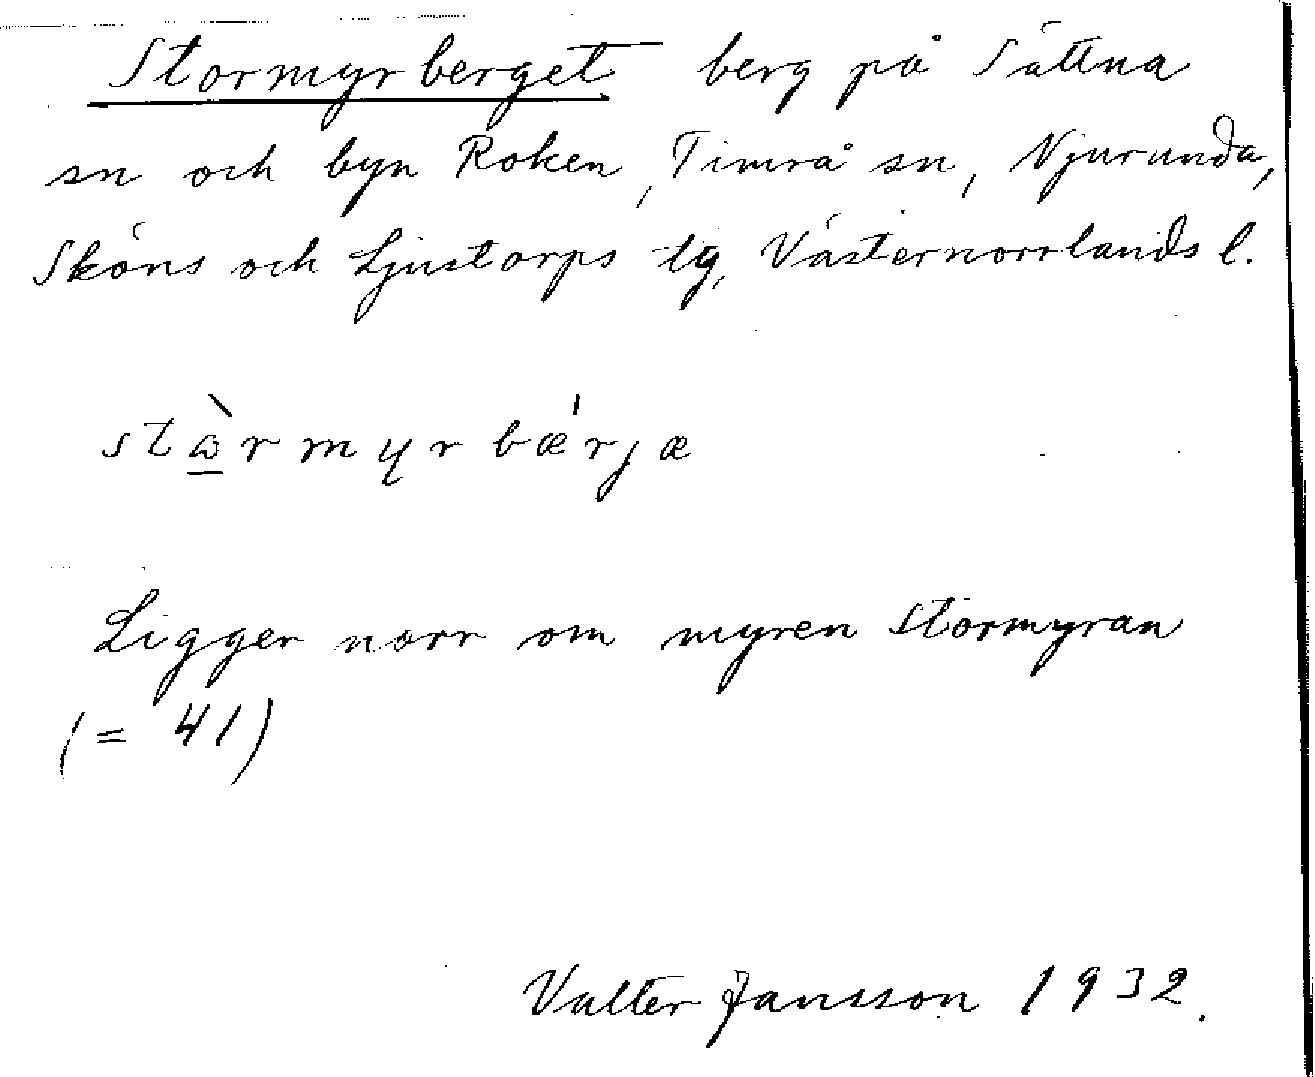 Stormyrberget berg på Sättna
sn och byn Roken, Timrå sn, Njurunda,
Sköns och Ljustorps tg, Västernorrlands l.
stὼ̲rmyrbǽrjæ
Ligger norr om myren Stormyran
(= 41)
Valter Jansson 1932.